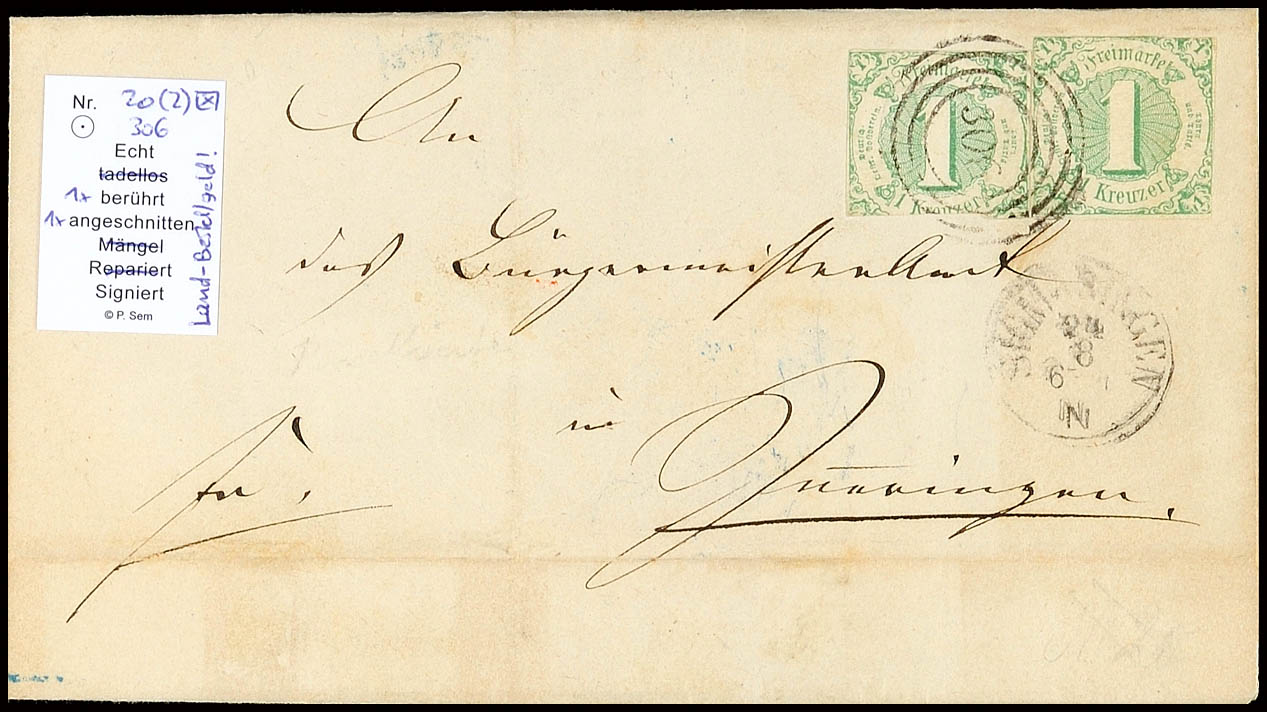 Nr. 20 (2)
306
Echt
tadellos
1x berührt
1x angeschnitten
Mängel
Repariert
Signiert
© P. Sem
Land-Bestellgeld!
An
das Bürgermeisteramt
in
fr.
Freimarke
1
1 Kreuzer
306
Freimarke
1
Kreuzer
SIGMARINGEN
24
8
6
N